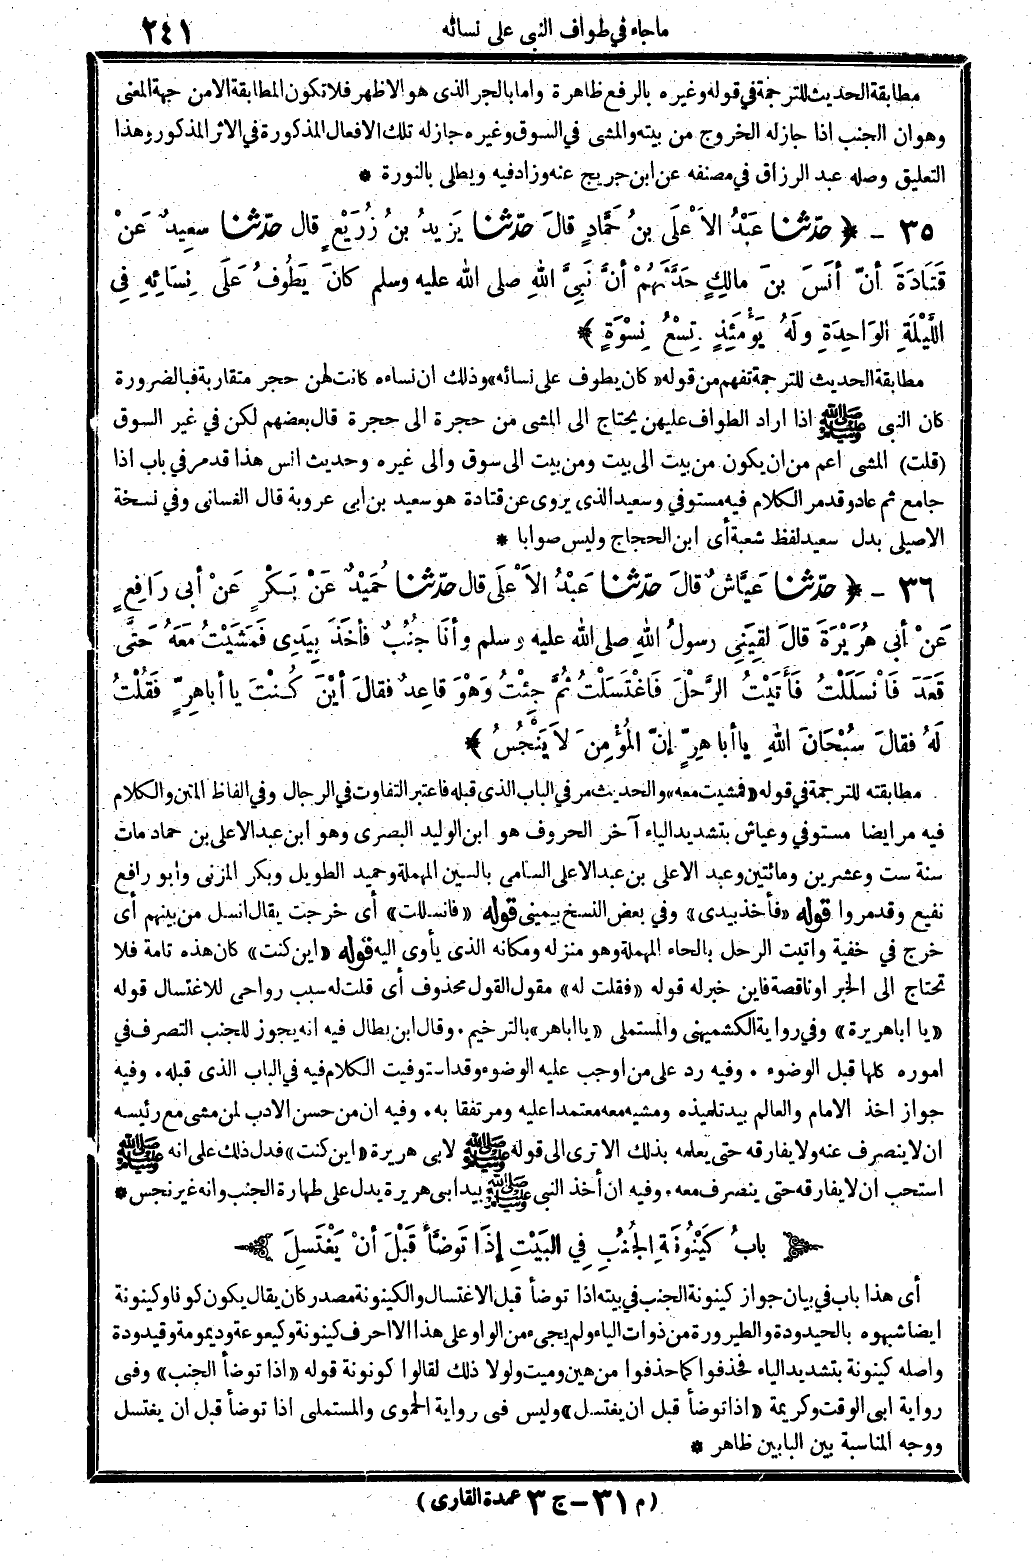 ماجاء في طواف النبي على نسائه
٢٤١
مطابقة الحديث للترجمة في قوله وغيره بالرفع ظاهرة واما بالجر الذى هو الاظهر فلا تكون المطابقة الا من جهة المعنى
وهو ان الجنب اذا جازله الخروج من بيته والمشى في السوق وغيره جازله تلك الافعال المذكورة في الاثر المذكور وهذا
التعليق وصله عبد الرزاق في مصنفه عن ابن جريج عنه وزاد فيه ويطلى بالنورة *
٣٥ - ﴿ حدّثنا عَبْدُ الاَعْلَى بنُ حَمَّادٍ قالَ حدّثنا يَزِيدُ بنُ زُرَيْعٍ قال حدّثنا سعِيدٌ عَنْ
قَتَادَةَ أنّ أنَسَ بنَ مالِكٍ حَدَّثَهُمْ أنَّ نَبِيَّ اللهِ صلى الله عليه وسلم كانَ يَطُوفُ عَلَى نِسَائِهِ فِي
اللَّيْلَةِ الوَاحِدَةِ ولَهُ يَوْمَئِذٍ تِسْعُ نِسْوَةٍ ﴾
مطابقة الحديث للترجمة تفهم من قوله «كان يطوف على نسائه» وذلك ان نساءه كانت لهن حجر متقاربة فبالضرورة
كان النبى ﷺ اذا اراد الطواف عليهن يحتاج الى المشى من حجرة الى حجرة قال بعضهم لكن في غير السوق
(قلت) المشى اعم من ان يكون من بيت الى بيت ومن بيت الى سوق والى غيره وحديث انس هذا قدمر في باب اذا
جامع ثم عاد وقدمر الكلام فيه مستوفي وسعيد الذى يروى عن قتادة هو سعيد بن ابى عروبة قال الغسانى وفي نسخة
الاصيلى بدل سعيد لفظ شعبة أى ابن الحجاج وليس صوابا *
٣٦ - ﴿ حدّثنا عَيَّاشٌ قالَ حدّثنا عَبْدُ الاَعْلَى قال حدّثنا حُمَيْدٌ عَنْ بَكْرٍ عَنْ أبى رَافِعٍ
عَنْ أبى هُرَيْرَةَ قالَ لقِيَنِى رسولُ اللهِ صلى الله عليه وسلم وأنَا جُنُبٌ فأخَذَ بِيَدِى فَمَشَيْتُ مَعَهُ حَتَّى
قَعَدَ فَانْسَلَلْتُ فَأَتَيْتُ الرَّحْلَ فَاغْتَسَلْتُ ثُمَّ جِئْتُ وَهْوَ قاعِدٌ فقالَ أيْنَ كُنْتَ يا أباهِرٍّ فَقُلْتُ
لَهُ فقالَ سُبْحَانَ اللهِ يا أبا هِرٍّ إنّ المُؤْمِنَ لاَ يَنْجُسُ ﴾
مطابقته للترجمة في قوله «فمشيت معه» والحديث مر في الباب الذى قبله فاعتبر التفاوت في الرجال وفي الفاظ المتن والكلام
فيه مر ايضا مستوفي وعياش بتشديد الياء آخر الحروف هو ابن الوليد البصرى وهو ابن عبد الاعلى بن حماد مات
سنة ست وعشرين ومائتين وعبد الاعلى بن عبد الاعلى السامى بالسين المهملة وحميد الطويل وبكر المزنى وابو رافع
نفيع وقدمروا قوله «فأخذ بيدى» وفي بعض النسخ بيمينى قوله «فانسللت» أى خرجت يقال انسل من بينهم أى
خرج في خفية واتيت الرحل بالحاء المهملة وهو منزله ومكانه الذى يأوى اليه قوله «اين كنت» كان هذه تامة فلا
تحتاج الى الخبر او ناقصة فاين خبرله قوله «فقلت له» مقول القول محذوف أى قلت له سبب رواحى للاغتسال قوله
«يا اباهريرة» وفي رواية الكشميهنى والمستملى «يا اباهر» بالترخيم. وقال ابن بطال فيه انه يجوز للجنب التصرف في
اموره كلها قبل الوضوء. وفيه رد على من اوجب عليه الوضوء وقد استوفيت الكلام فيه في الباب الذى قبله. وفيه
جواز اخذ الامام والعالم بيد تلميذه ومشيه معه معتمدا عليه ومرتفقا به. وفيه ان من حسن الادب لمن مشى مع رئيسه
ان لاينصرف عنه ولا يفارقه حتى يعلمه بذلك الا ترى الى قوله ﷺ لابى هريرة «اين كنت» فدل ذلك على انه ﷺ
استحب ان لا يفارقه حتى ينصرف معه. وفيه ان أخذ النبى ﷺ بيد ابى هريرة يدل على طهارة الجنب وانه غير نجس *
بابُ كَيْنُونَةِ الجُنُبِ فِي البَيْتِ إذَا تَوَضَّأَ قَبْلَ أنْ يَغْتَسِلَ
أى هذا باب في بيان جواز كينونة الجنب في بيته اذا توضأ قبل الاغتسال والكينونة مصدر كان يقال يكون كونا وكينونة
ايضا شبهوه بالحيدودة والطيرورة من ذوات الياء ولم يجىء من الواو على هذا الا احرف كينونة وكيعوعة وديمومة وقيدودة
واصله كينونة بتشديد الياء فحذفوا كما حذفوا من هين وميت ولولا ذلك لقالوا كونونة قوله «اذا توضأ الجنب» وفى
رواية ابى الوقت وكريمة «اذا توضأ قبل ان يغتسل» وليس فى رواية الحموى والمستملى اذا توضأ قبل ان يغتسل
ووجه المناسبة بين البابين ظاهر *
(م ٣١ - ج ٣ عمدة القارى)